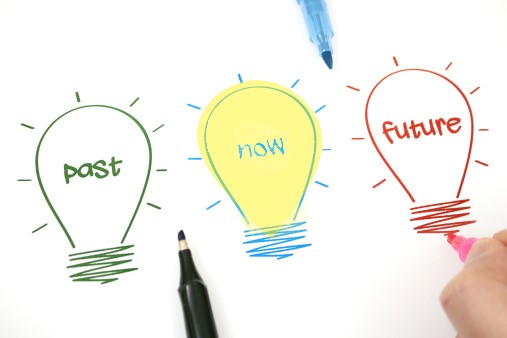 past
now
future